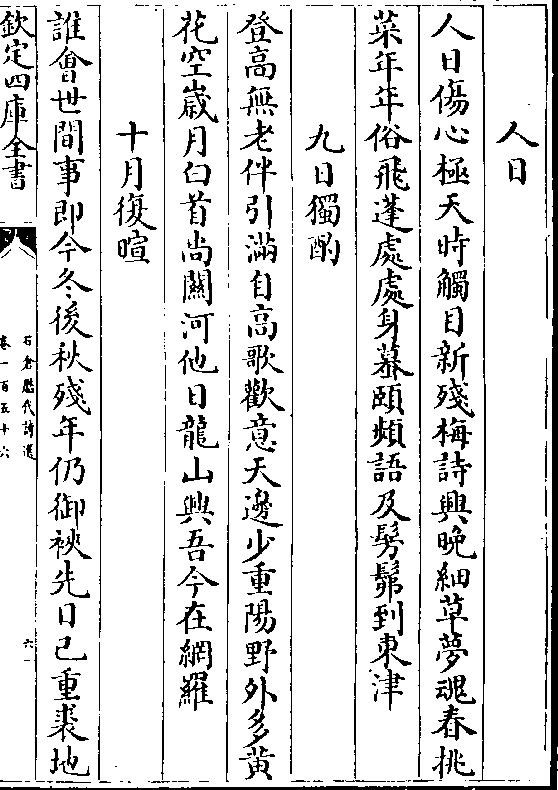 人日
人日傷心極天時觸目新殘梅詩興晩細草夢魂春挑
菜年年俗飛蓬處處身蟇頤頻語及髣髴到東津
九日獨酌
登高無老伴引滿自高歌歡意天邊少重陽野外多黄
花空嵗月白首尚關河他日龍山興吾今在網羅
十月復暄
誰會世間事即今冬後秋殘年仍御裌先日已重裘地
欽定四庫全書
石倉歷代詩選
卷一百五十六
六